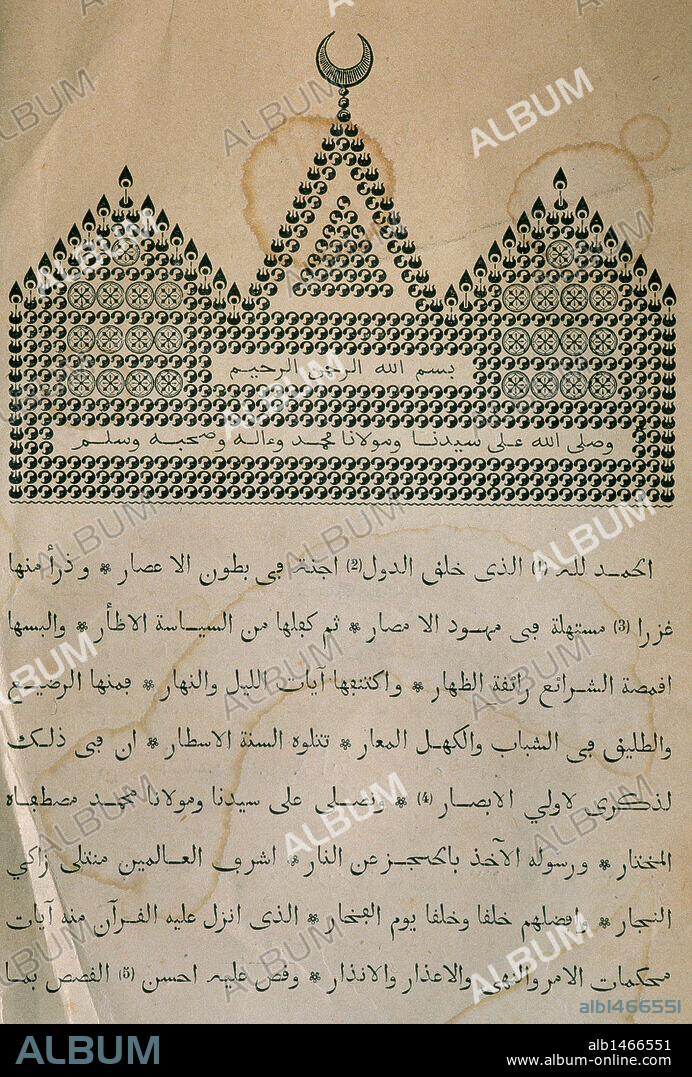 بسم الله الرحمن الرحيم
وصلى الله على سيدنا ومولانا محمد وءاله وصحبه وسلم
الحمد لله (1) الذى خلق الدول (2) اجنة فى بطون الاعصار * وذرأ منها
غررا (3) مستهلة فى مهود الامصار * ثم كفلها من السياسة الاظأر * والبسها
اقمصة الشرائع رائقة الطهار * واكتنفها آيات الليل والنهار * فمنها الرضيع
والطليق فى الشباب والكهل المعار * تتلوه السنة الاسطار * ان فى ذلك
لذكرى لاولي الابصار (4) * ونصلى على سيدنا ومولانا محمد مصطفاه
المختار * ورسوله الآخذ بالحجز عن النار * اشرف العالمين منتلى زاكي
النجار * وافضلهم خلقا وخلقا يوم الفخار * الذى انزل عليه القرآن منه آيات
محكمات الامر والنهى والاعذار والانذار * وقص عليه احسن (5) القصص بما
ALBUM
alb1466551
ALBUM
alb1466551
www.album-online.com